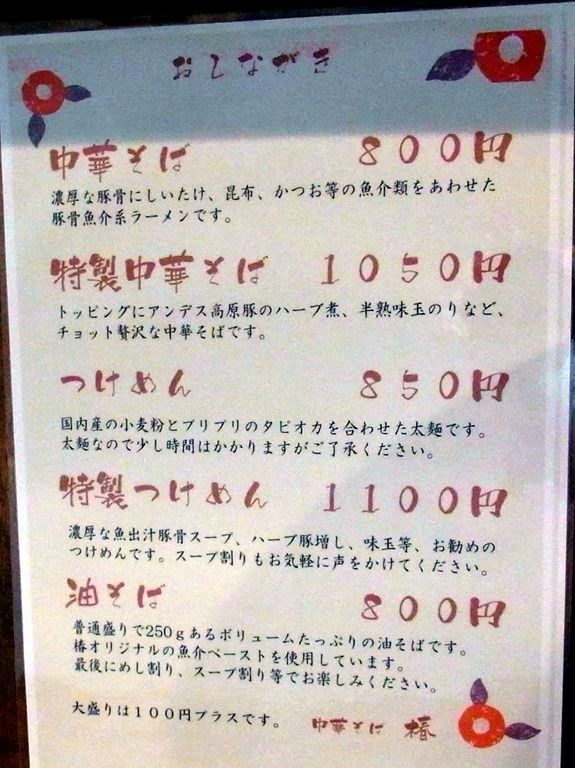 おしながき
中華そば 800円
濃厚な豚骨にしいたけ、昆布、かつお等の魚介類をあわせた
豚骨魚介系ラーメンです。
特製中華そば 1050円
トッピングにアンデス高原豚のハーブ煮、半熟味玉のりなど、
チョット贅沢な中華そばです。
つけめん 850円
国内産の小麦粉とプリプリのタピオカを合わせた太麺です。
太麺なので少し時間はかかりますがご了承ください。
特製つけめん 1100円
濃厚な魚出汁豚骨スープ、ハーブ豚増し、味玉等、お勧めの
つけめんです。スープ割りもお気軽に声をかけてください。
油そば 800円
普通盛りで250gあるボリュームたっぷりの油そばです。
椿オリジナルの魚介ペーストを使用しています。
最後にめし割り、スープ割り等でお楽しみください。
大盛りは100円プラスです。
中華そば 椿